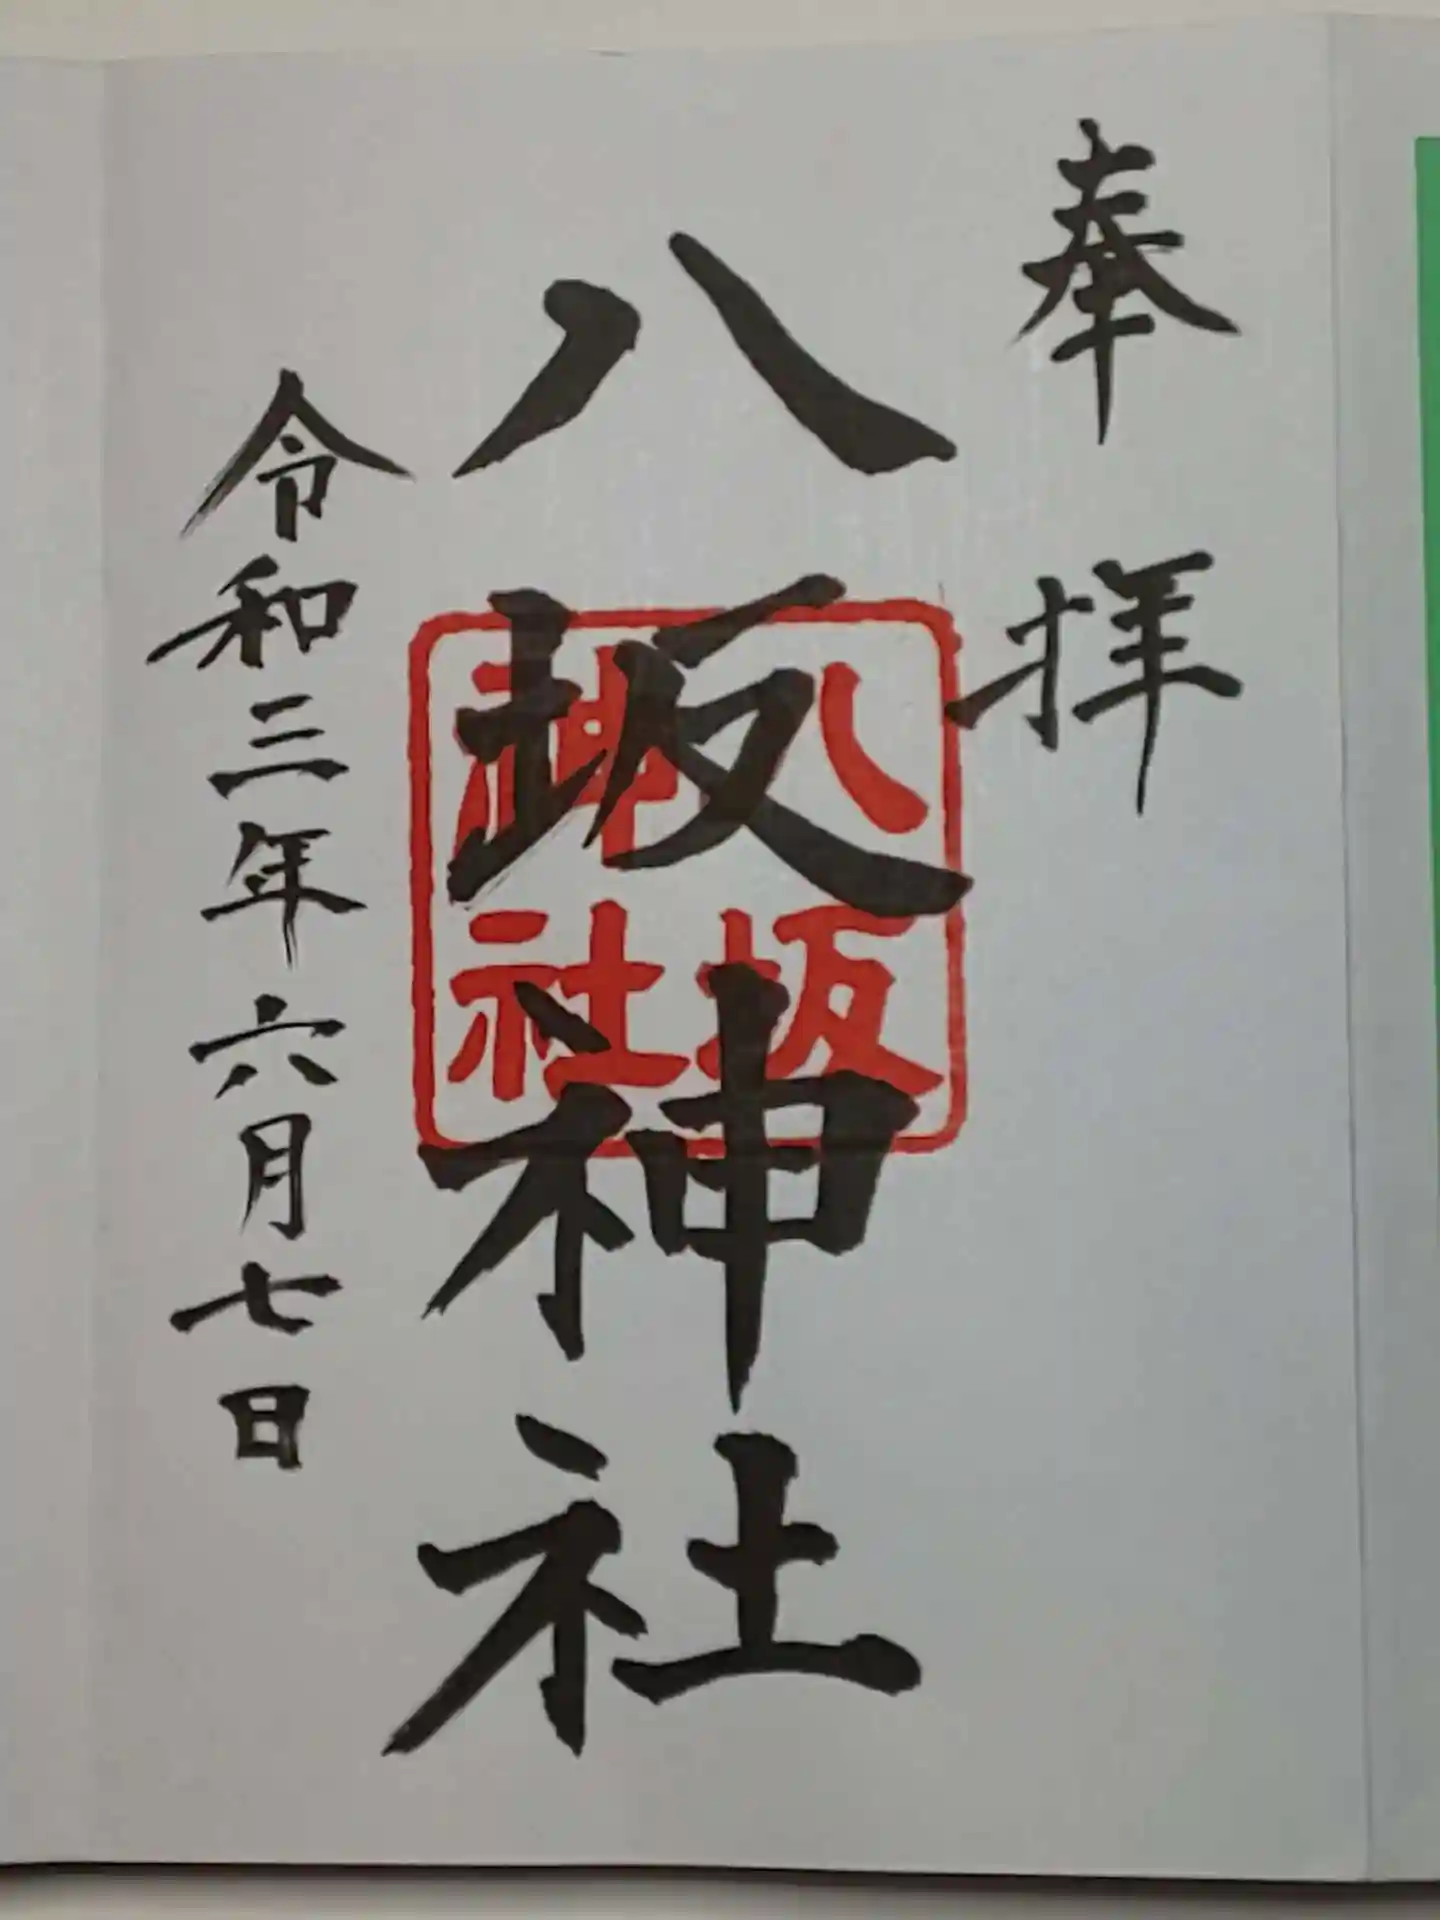 奉拝
八坂神社
八坂神社
令和三年六月七日